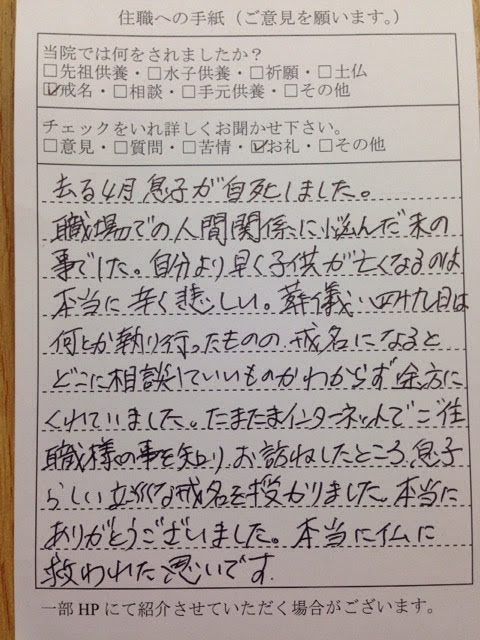 住職への手紙（ご意見を願います。）
当院では何をされましたか？
□先祖供養・□水子供養・□祈願・□土仏
☑戒名・□相談・□手元供養・□その他
チェックをいれ詳しくお聞かせ下さい。
□意見・□質問・□苦情・☑お礼・□その他
去る4月息子が自死しました。
職場での人間関係に悩んだ末の
事でした。自分より早く子供が亡くなるのは
本当に辛く悲しい。葬儀、四十九日は
何とか執り行ったものの戒名になると
どこに相談していいものかわからず途方に
くれていました。たまたまインターネットでご住
職様の事を知り、お訪ねしたところ、息子
らしい立派な戒名を授かりました。本当に
ありがとうございました。本当に仏に
救われた思いです。
一部HPにて紹介させていただく場合がございます。